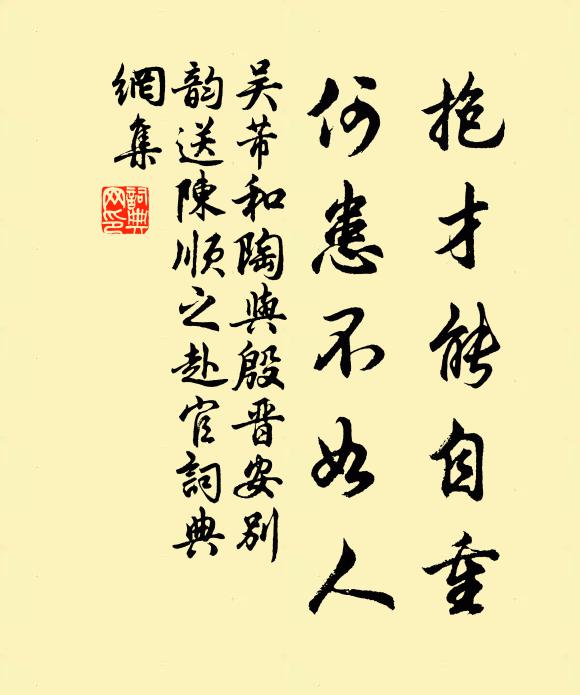 抱才能自重
何患不如人
吴芾和陶與殷晋安别
韵送陳順之赴官詞典
網集
詞典
网印